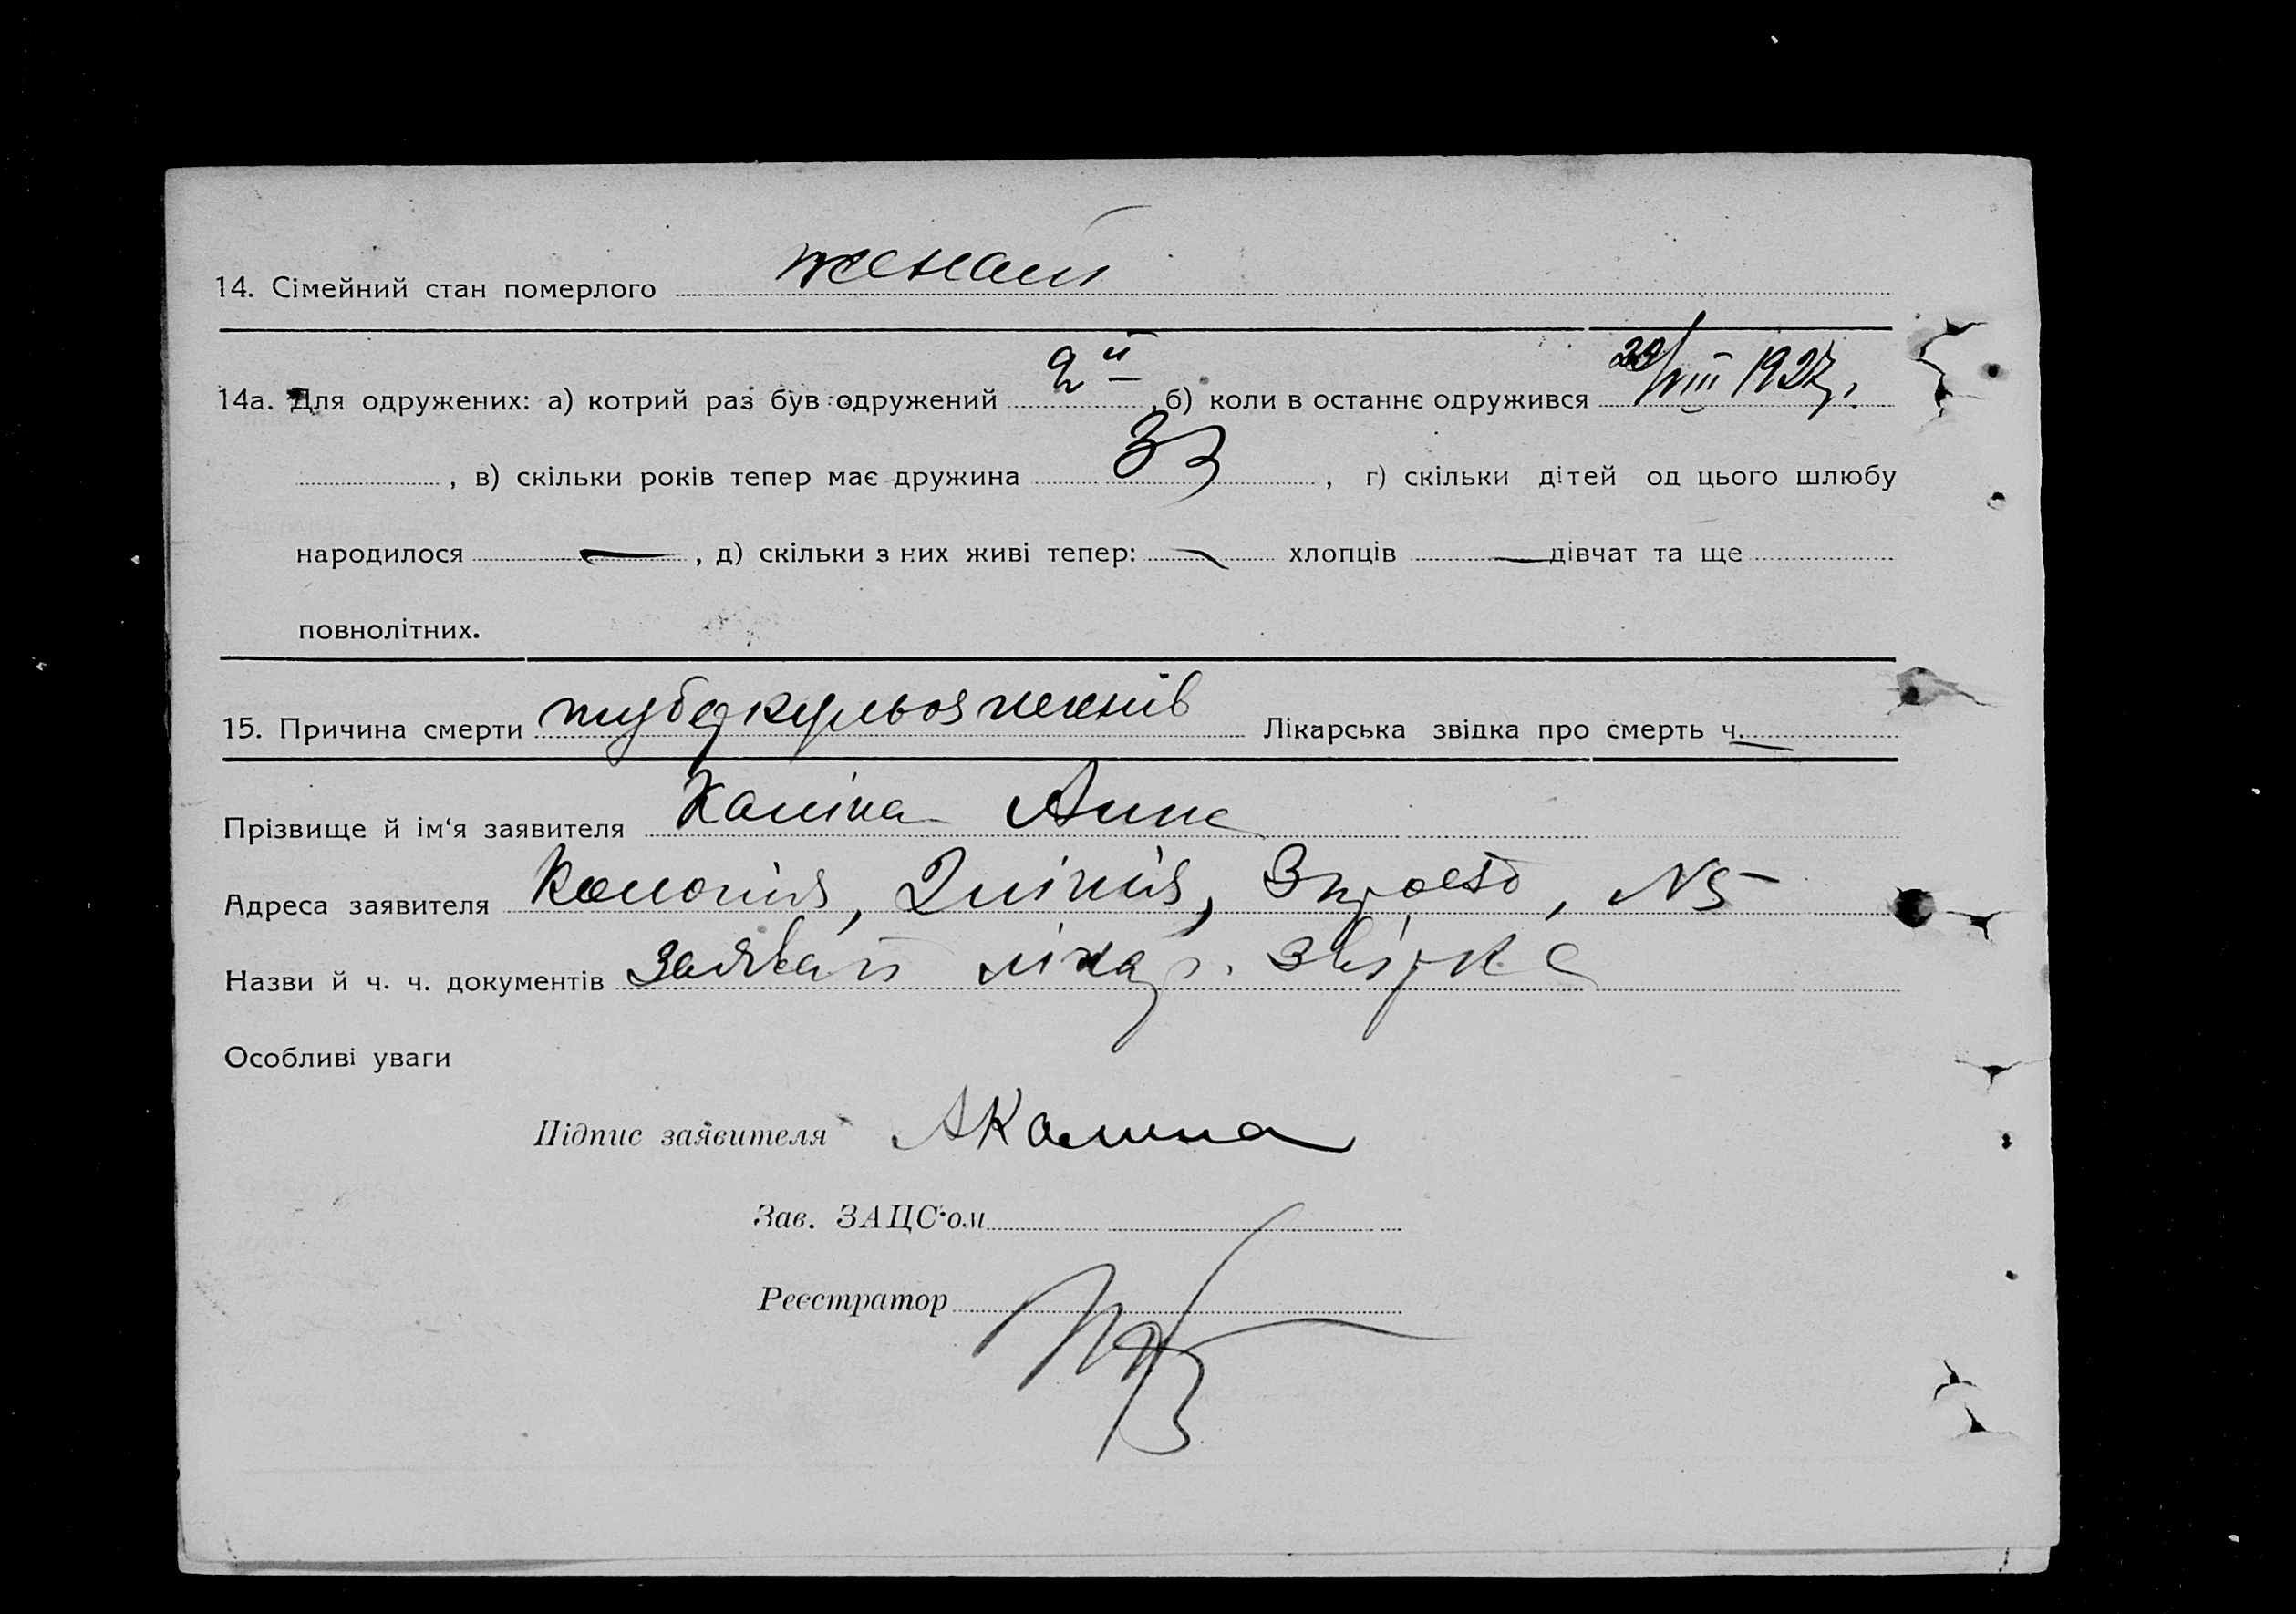 14. Сімейний стан померлого женатий
14а. Для одружених: а) котрий раз був одружений 2й, б) коли в останнє одружився /VIII 1927.
, в) скільки років тепер має дружина 33, г) скільки дітей од цього шлюбу
народилося —, д) скільки з них живі тепер: — хлопців — дівчат та ще
повнолітних.
15. Причина смерти туберкульоз Лікарська звідка про смерть ч. —
Прізвище й ім‘я заявителя Каліна Анна
Адреса заявителя Колонія, N5
Назви й ч. ч. документів заява й лікар. звідка
Особливі уваги
Підпис заявителя АКалина
Зав. ЗАЦС‘ом
Реєстратор